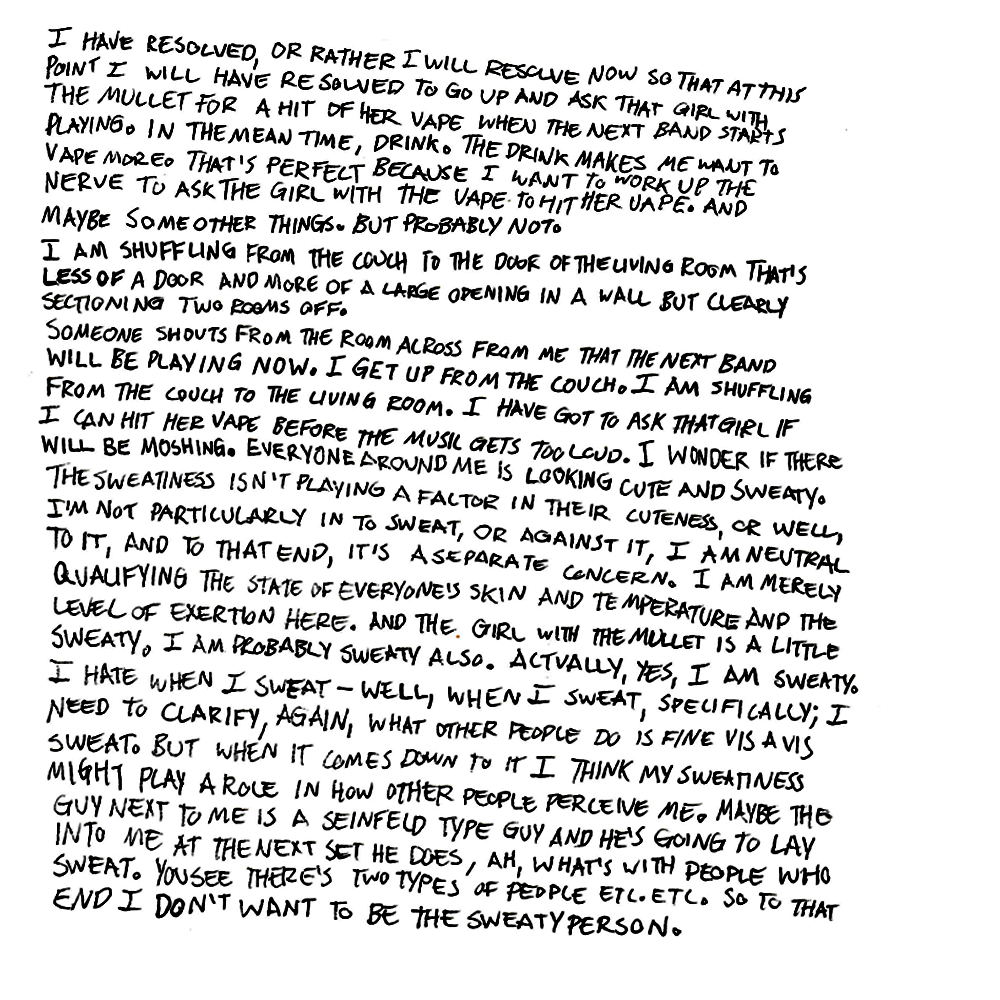 I HAVE RESOLVED, OR RATHER I WILL RESOLVE NOW SO THAT AT THIS
POINT I WILL HAVE RESOLVED TO GO UP AND ASK THAT GIRL WITH
THE MULLET FOR A HIT OF HER VAPE WHEN THE NEXT BAND STARTS
PLAYING. IN THE MEAN TIME, DRINK. THE DRINK MAKES ME WANT TO
VAPE MORE. THAT'S PERFECT BECAUSE I WANT TO WORK UP THE
NERVE TO ASK THE GIRL WITH THE VAPE TO HIT HER VAPE. AND
MAYBE SOME OTHER THINGS. BUT PROBABLY NOT.
I AM SHUFFLING FROM THE COUCH TO THE DOOR OF THE LIVING ROOM THAT'S
LESS OF A DOOR AND MORE OF A LARGE OPENING IN A WALL BUT CLEARLY
SECTIONING TWO ROOMS OFF.
SOMEONE SHOUTS FROM THE ROOM ACROSS FROM ME THAT THE NEXT BAND
WILL BE PLAYING NOW. I GET UP FROM THE COUCH. I AM SHUFFLING
FROM THE COUCH TO THE LIVING ROOM. I HAVE GOT TO ASK THAT GIRL IF
I CAN HIT HER VAPE BEFORE THE MUSIC GETS TOO LOUD. I WONDER IF THERE
WILL BE MOSHING. EVERYONE AROUND ME IS LOOKING CUTE AND SWEATY.
THE SWEATINESS ISN'T PLAYING A FACTOR IN THEIR CUTENESS, OR WELL,
I'M NOT PARTICULARLY IN TO SWEAT, OR AGAINST IT, I AM NEUTRAL
TO IT, AND TO THAT END, IT'S A SEPARATE CONCERN. I AM MERELY
QUALIFYING THE STATE OF EVERYONE'S SKIN AND TEMPERATURE AND THE
LEVEL OF EXERTION HERE. AND THE GIRL WITH THE MULLET IS A LITTLE
SWEATY, I AM PROBABLY SWEATY ALSO. ACTUALLY, YES, I AM SWEATY.
I HATE WHEN I SWEAT – WELL, WHEN I SWEAT, SPECIFICALLY; I
NEED TO CLARIFY, AGAIN, WHAT OTHER PEOPLE DO IS FINE VIS A VIS
SWEAT. BUT WHEN IT COMES DOWN TO IT I THINK MY SWEATINESS
MIGHT PLAY A ROLE IN HOW OTHER PEOPLE PERCEIVE ME. MAYBE THE
GUY NEXT TO ME IS A SEINFELD TYPE GUY AND HE'S GOING TO LAY
INTO ME AT THE NEXT SET HE DOES, AH, WHAT'S WITH PEOPLE WHO
SWEAT. YOU SEE THERE'S TWO TYPES OF PEOPLE ETC. ETC. SO TO THAT
END I DON'T WANT TO BE THE SWEATY PERSON.